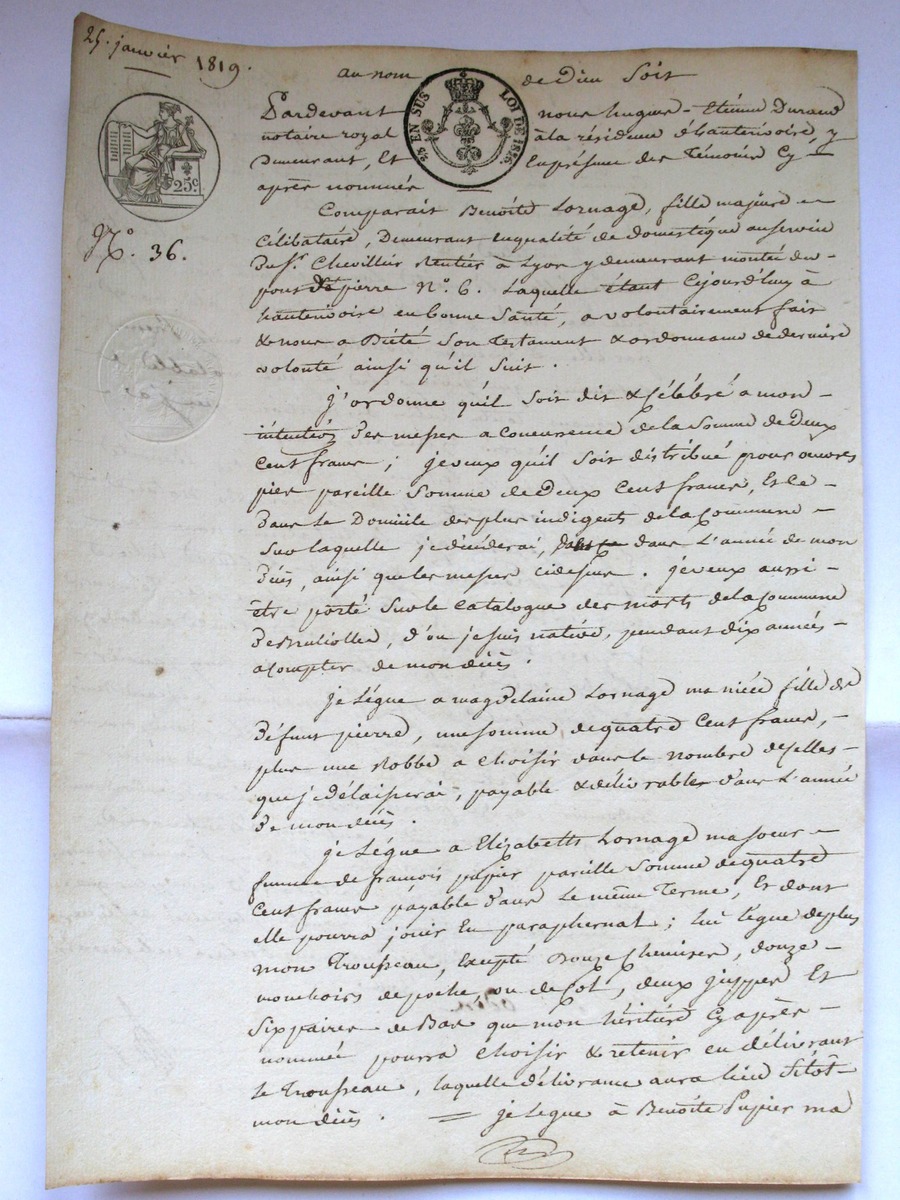 25. janvier 1819.
au nom de Dieu Soit
EN SUS LOI DE 1816
25c
N.o 36.
Pardevant nous hugues-Etienne Durand
notaire royal à la résidence d'hauterivoire, y
Demeurant, Et En présence des Témoins Cy
après nommés
Comparait Benoîte Lornage, fille majeure
Célibataire, Demeurant en qualité de domestique au service
du Sr. Chevillier Rentier à Lyon y demeurant montée du
pont de pierre N.o 6. Laquelle étant Cejourd'huy à
hauterivoire en bonne Santé, a volontairement fait
& nous a Dicté Son Testament & ordonnance de dernière
volonté ainsi qu'il Suit.
j'ordonne qu'il Soit dit & Célébré a mon
intention des messes a Concurrence de la Somme de Deux
Cent francs; je veux qu'il Soit distribué pour œuvres
pies pareille Somme de Deux Cent francs, Et Ce
dans le Domicile des plus indigents de la Commune
Sur laquelle je décéderai, dans l'année de mon
décès, ainsi que les messes cidessus. je veux aussi
être porté Sur le Catalogue des morts de la Commune
de Brullioles, d'ou je suis native, pendant dix années
a Compter de mon décès.
je Lègue a magdelaine Lornage ma nièce fille de
défunt pierre, une somme de quatre Cent francs,
plus une Robbe a Choisir dans le nombre de Celles
que je délaisserai, payable & délivrables dans L'année
de mon décès.
je Lègue a Elizabeth Lornage ma Soeur
femme de françois papier pareille Somme de quatre
Cent francs payable dans le même Terme, Et dont
elle pourra jouir En paraphernal; lui lègue de plus
mon Trousseau, Excepté Douze Chemises, douze
mouchoirs de poche, ou de Col, deux juppes Et
Six paires de Bas que mon héritière Cy après
nommée pourra Choisir & retenir en délivrant
le Trousseau, laquelle délivrance aura lieu Sitôt
mon décès. je Lègue à Benoîte Papier ma